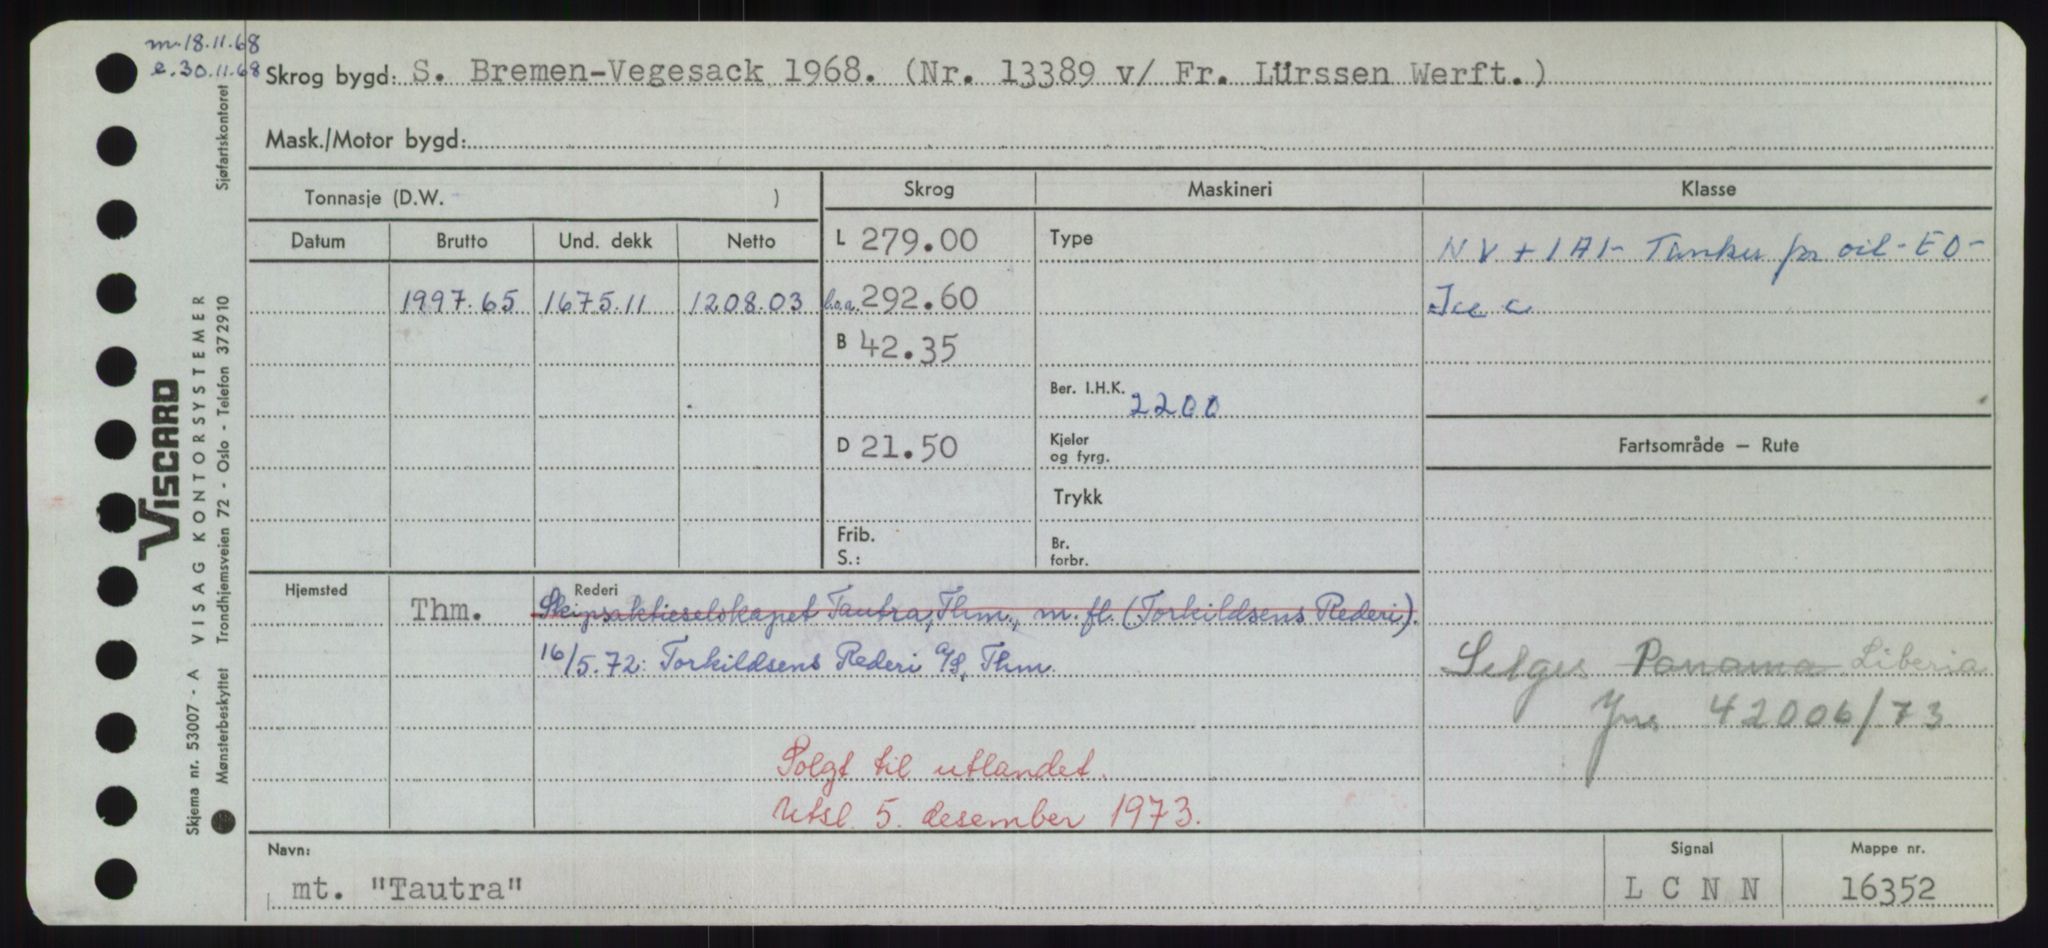 m. 18.11.68
e. 30.11.68
Skrog bygd: S. Bremen-Vegesack 1968. (Nr. 13389 v/ Fr. Lürssen Werft.)
Mask./Motor bygd:
Tonnasje (D.W. )
Skrog Maskineri Klasse
Datum Brutto Und. dekk Netto
L 279.00 Type NV + 1A1- Tanker for oil - EO -
1997.65 1675.11 1208.03 l.o.a. 292.60 Ice c
B 42.35
Ber. I.H.K. 2200
D 21.50 Kjeler og fyrg. Fartsområde — Rute
Trykk
Frib. S.: Br. forbr.
Hjemsted Rederi
Thm. Skipsaktieselskapet Tautra, Thm., m. fl. (Torkildsens Rederi).
16/5.72: Torkildsens Rederi A/S, Thm.
Selges Panama Liberia
42006/73
Solgt til utlandet.
Utsl. 5. desember 1973.
Navn: Signal Mappe nr.
mt. "Tautra" L C N N 16352
Sjøfartskontoret
VISCARD
VISAG KONTORSYSTEMER
Trondhjemsveien 72 - Oslo - Telefon 372910
Skjema nr. 53007 - A
Mønsterbeskyttet